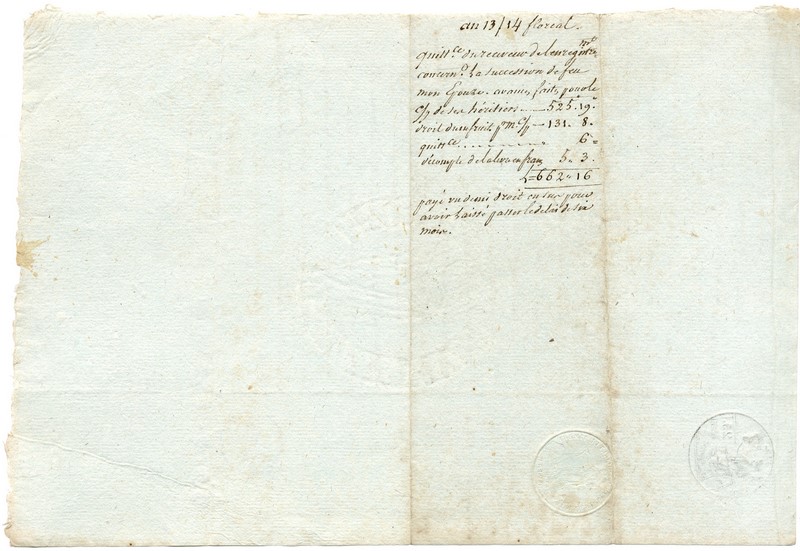 an 13/14 floreal.
quitt.ce du receveur de lenregistre mt
concern.t La succession de feu
mon Epouze. avances faits pour le
C/p de ses héritiers — 525. 19.
droit dusufruit p.r m. C/p — 131. 8.
quitt.ce 6 =
décompte de la livre en franc 5. 3.
L = 662 = 16
payé un demi droit en sus pour
avoir Laissé passer le delai de six
mois.